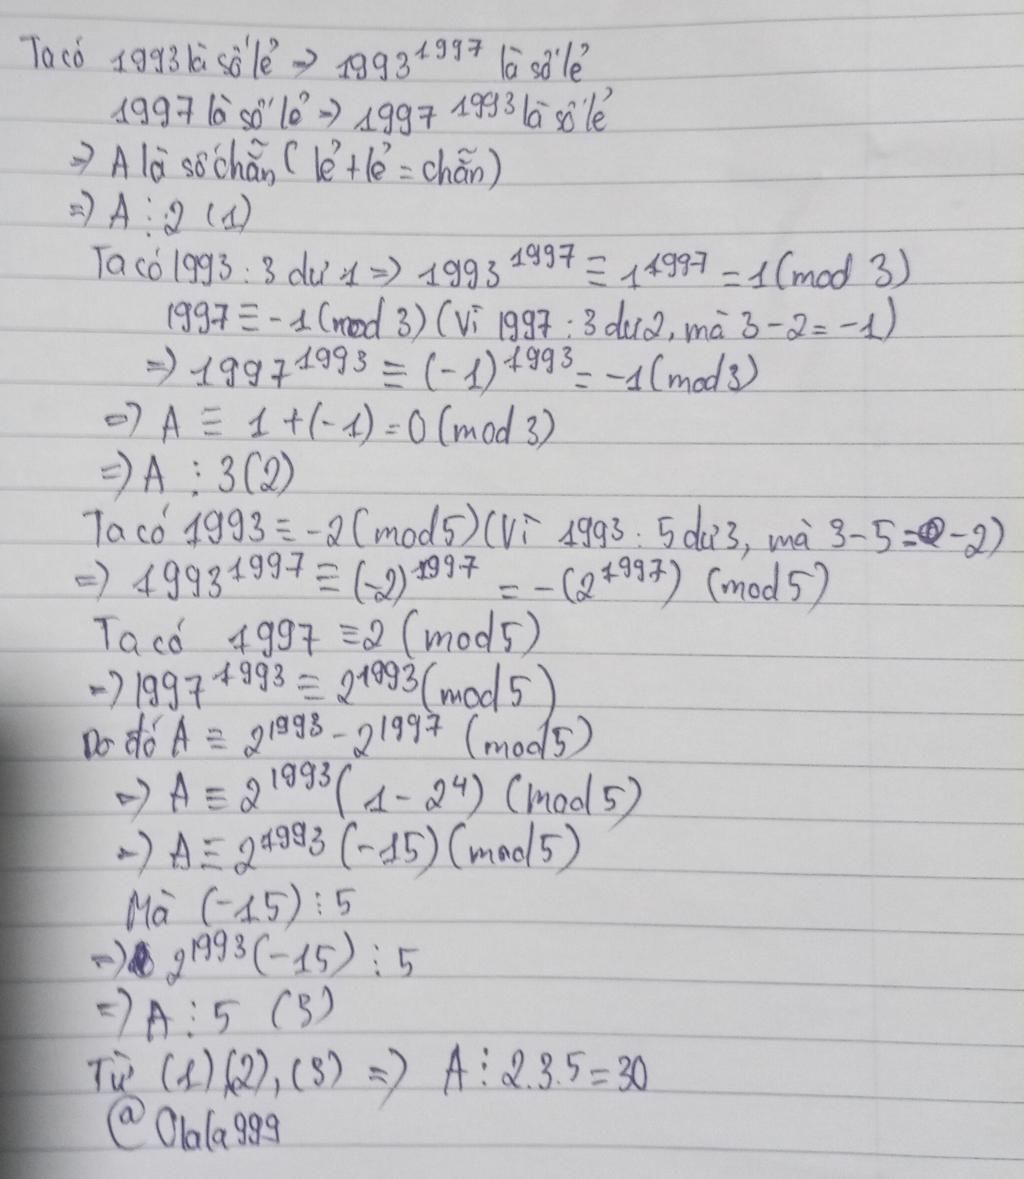 Ta có 1993 là số lẻ => 1993^1997 là số lẻ
1997 là số lẻ => 1997^1993 là số lẻ
=> A là số chẵn (lẻ + lẻ = chẵn)
=> A ⋮ 2 (1)
Ta có 1993 : 3 dư 1 => 1993^1997 ≡ 1^1997 = 1 (mod 3)
1997 ≡ -1 (mod 3) (Vì 1997 : 3 dư 2, mà 3 - 2 = -1)
=> 1997^1993 ≡ (-1)^1993 = -1 (mod 3)
=> A ≡ 1 + (-1) = 0 (mod 3)
=> A ⋮ 3 (2)
Ta có 1993 ≡ -2 (mod 5) (Vì 1993 : 5 dư 3, mà 3 - 5 = -2)
=> 1993^1997 ≡ (-2)^1997 = -(2^1997) (mod 5)
Ta có 1997 ≡ 2 (mod 5)
=> 1997^1993 ≡ 2^1993 (mod 5)
Do đó A ≡ 2^1993 - 2^1997 (mod 5)
=> A ≡ 2^1993 (1 - 2^4) (mod 5)
=> A ≡ 2^1993 (-15) (mod 5)
Mà (-15) ⋮ 5
=> 2^1993 (-15) ⋮ 5
=> A ⋮ 5 (3)
Từ (1), (2), (3) => A ⋮ 2.3.5 = 30
@Olala999